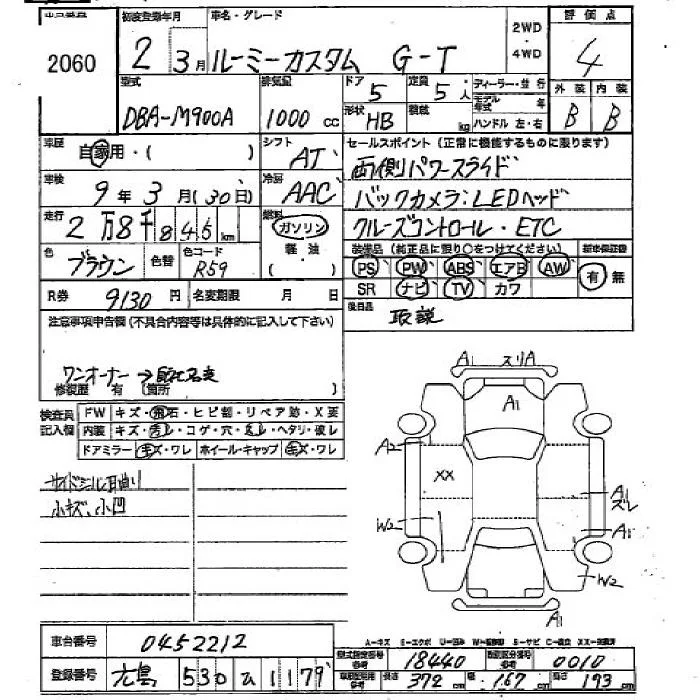 出品番号 2060
初度登録年月 2年 3月
車名・グレード ルーミーカスタム G-T
2WD・4WD
評価点 4
型式 DBA-M900A
排気量 1000 cc
ドア 5
定員 5人
形状 HB
積載 kg
ディーラー・並行
モデル年式 年
ハンドル 左・右
外装 B
内装 B
車歴 自家用・( )
シフト AT
車検 9年 3月 (30日)
冷房 AAC
走行 2万8千845km
燃料 ガソリン
軽油
( )
色 ブラウン
色替
色コード R59
R券 9130円
名変期限 月 日
セールスポイント(正常に機能するものに限ります)
両側パワースライド
バックカメラ:LEDヘッド
クルーズコントロール・ETC
装備品(純正品に限り○をつけてください)
新車保証書 有 無
PS PW ABS エアB AW
SR ナビ TV カワ
後日品 取説
注意事項申告欄(不具合内容等は具体的に記入して下さい)
ワンオーナー→
修復歴 有 〔箇所 〕
検査員記入欄
FW キズ・飛石・ヒビ割・リペア跡・X要
内装 キズ・汚レ・コゲ・穴・スレ・ヘタリ・破レ
ドアミラー キズ・ワレ ホイール・キャップ キズ・ワレ
サイドシル耳曲り
小キズ、小凹
A1 スリA
A1
A2
XX
A1 ズレ
W2
A1
W2
A1
A-キズ E-エクボ U-凹み W-補修跡 S-サビ C-腐食 XX-交換済
車台番号 0452212
登録番号 広島 530 ム 1179
型式指定番号 参考 18440
類別区分番号 参考 0010
長さ 372 cm
幅 167 cm
高さ 193 cm